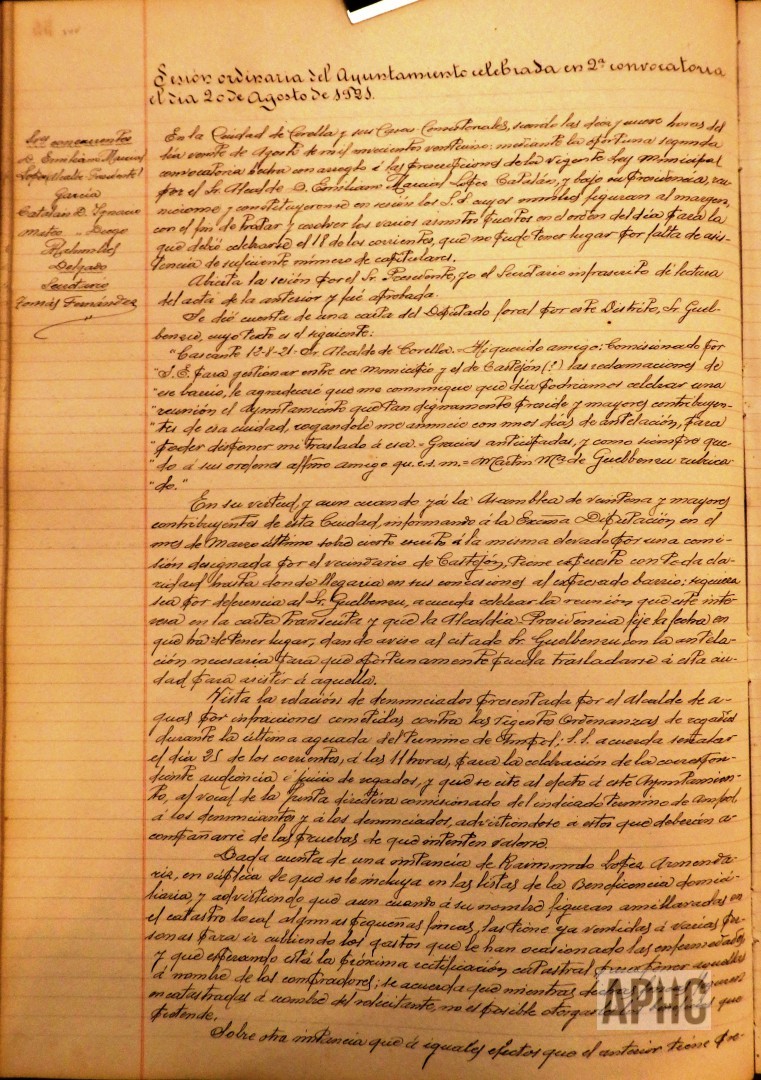 Sesión ordinaria del Ayuntamiento celebrada en 2ª convocatoria
el dia 20 de Agosto de 1921.
Sres concurrentes
D. Emiliano Marcial
Lopez, Alcalde Presidente
García
Catalán D. Ignacio
Mateo - Diego
Delgado
Secretario
Tomás Fernández
En la Ciudad de Corella y sus Casas Consistoriales, siendo las diez y nueve horas del
día veinte de Agosto de mil novecientos veintiuno: mediante la oportuna segunda
convocatoria hecha con arreglo á las prescripciones de la vigente Ley Municipal
por el Sr. Alcalde D. Emiliano Marcial Lopez Catalán, y bajo su Presidencia, reu-
nieronse y constituyeronse en sesión los S.S. cuyos nombres figuran al margen,
con el fin de tratar y resolver los varios asuntos puestos en el orden del día para la
que debió celebrarse el 18 de los corrientes, que no pudo tener lugar por falta de asis-
tencia de suficiente número de capitulares.
Abierta la sesión por el Sr. Presidente, yo el Secretario infrascrito dí lectura
del acta de la anterior y fué aprobada.
Se dió cuenta de una carta del Diputado foral por este Distrito, Sr. Guel-
benzu, cuyo texto es el siguiente:
"Cascante 12-8-21- Sr. Alcalde de Corella.- Mi querido amigo: Comisionado por
"S.E. para gestionar entre ese Municipio y el de Castejón (!) las reclamaciones de
"ese barrio, le agradeceré que me comunique que día podriamos celebrar una
"reunión el Ayuntamiento que tan dignamente preside y mayores contribuyen-
"tes de esa ciudad, rogandole me anuncie con unos días de antelación, para
"poder disponer mi traslado á esa.- Gracias anticipadas, y como siempre que-
"do á sus ordenes affmo amigo q. e. s. m.- Martin Mª de Guelbenzu rubrica-
"do."
En su virtud, y aun cuando yá la Asamblea de Veintena y mayores
contribuyentes de esta Ciudad, informando á la Excma Diputación en el
mes de Marzo último sobre cierto escrito á la misma elevado por una comi-
sión designada por el vecindario de Castejón, tiene expuesto con toda cla-
ridad hasta donde llegaria en sus concesiones al expresado barrio; siquiera
sea por deferencia al Sr. Guelbenzu, acuerda celebrar la reunión que este inte-
resa en la carta transcrita y que la Alcaldía Presidencia fije la fecha en
que ha de tener lugar, dando aviso al citado Sr. Guelbenzu con la antela-
ción necesaria para que oportunamente pueda trasladarse á esta ciu-
dad para asistir á aquella.
Vista la relación de denunciados presentada por el Alcalde de a-
guas por infracciones cometidas contra las vigentes Ordenanzas de regadío
durante la última aguada del término de S.S. acuerda señalar
el día 25 de los corrientes, á las 11 horas, para la celebración de la correspon-
diente audiencia ó juicio de regados, y que se cite al efecto á este Ayuntamien-
to, al vocal de la Junta directiva comisionado del indicado término de
á los denunciantes y á los denunciados, advirtiendose á estos que deberán a-
compañarse de las pruebas de que intenten valerse.
Dada cuenta de una instancia de Raimundo Lopez Armenda-
riz, en súplica de que se le incluya en las listas de la Beneficencia domici-
liaria, y advirtiendo que aun cuando á su nombre figuran amillaradas en
el catastro local algunas pequeñas fincas, las tiene ya vendidas á varias per-
sonas para ir cubriendo los gastos que le han ocasionado las enfermedades
y que esperando está la próxima rectificación catastral para
á nombre de los compradores; se acuerda que mientras
encatastradas á nombre del solicitante, no es posible otorgarle que
pretende.
Sobre otra instancia que á iguales efectos que el anterior tiene pre-
APHC